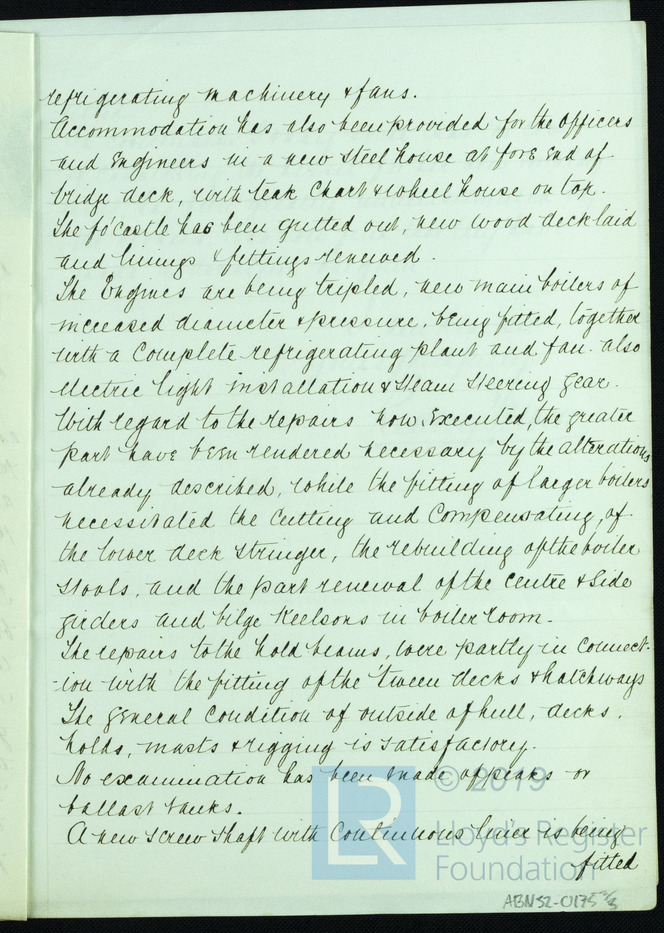 refrigerating machinery & fans.
Accommodation has also been provided for the officers
and Engineers in a new steel house at fore end of
bridge deck, with teak chart & wheel house on top.
The fo'castle has been gutted out, new wood deck laid
and linings & fittings renewed.
The Engines are being tripled, new main boilers of
increased diameter & pressure, being fitted, together
with a complete refrigerating plant and fan. also
electric light installation & steam steering gear.
With regard to the repairs now executed, the greater
part have been rendered necessary by the alterations
already described, while the fitting of larger boilers
necessitated the cutting and compensating, of
the lower deck stringer, the rebuilding of the boiler
stools, and the part renewal of the centre & side
girders and bilge keelsons in boiler room.
The repairs to the hold beams, were partly in connect-
-ion with the fitting of the 'tween decks & hatchways
The general condition of outside of hull, decks,
holds, masts & rigging is satisfactory.
No examination has been made of peaks or
ballast tanks.
A new screw shaft with continuous liner is being
fitted
LR © 2019
Lloyd's Register
Foundation
ABN52-0175